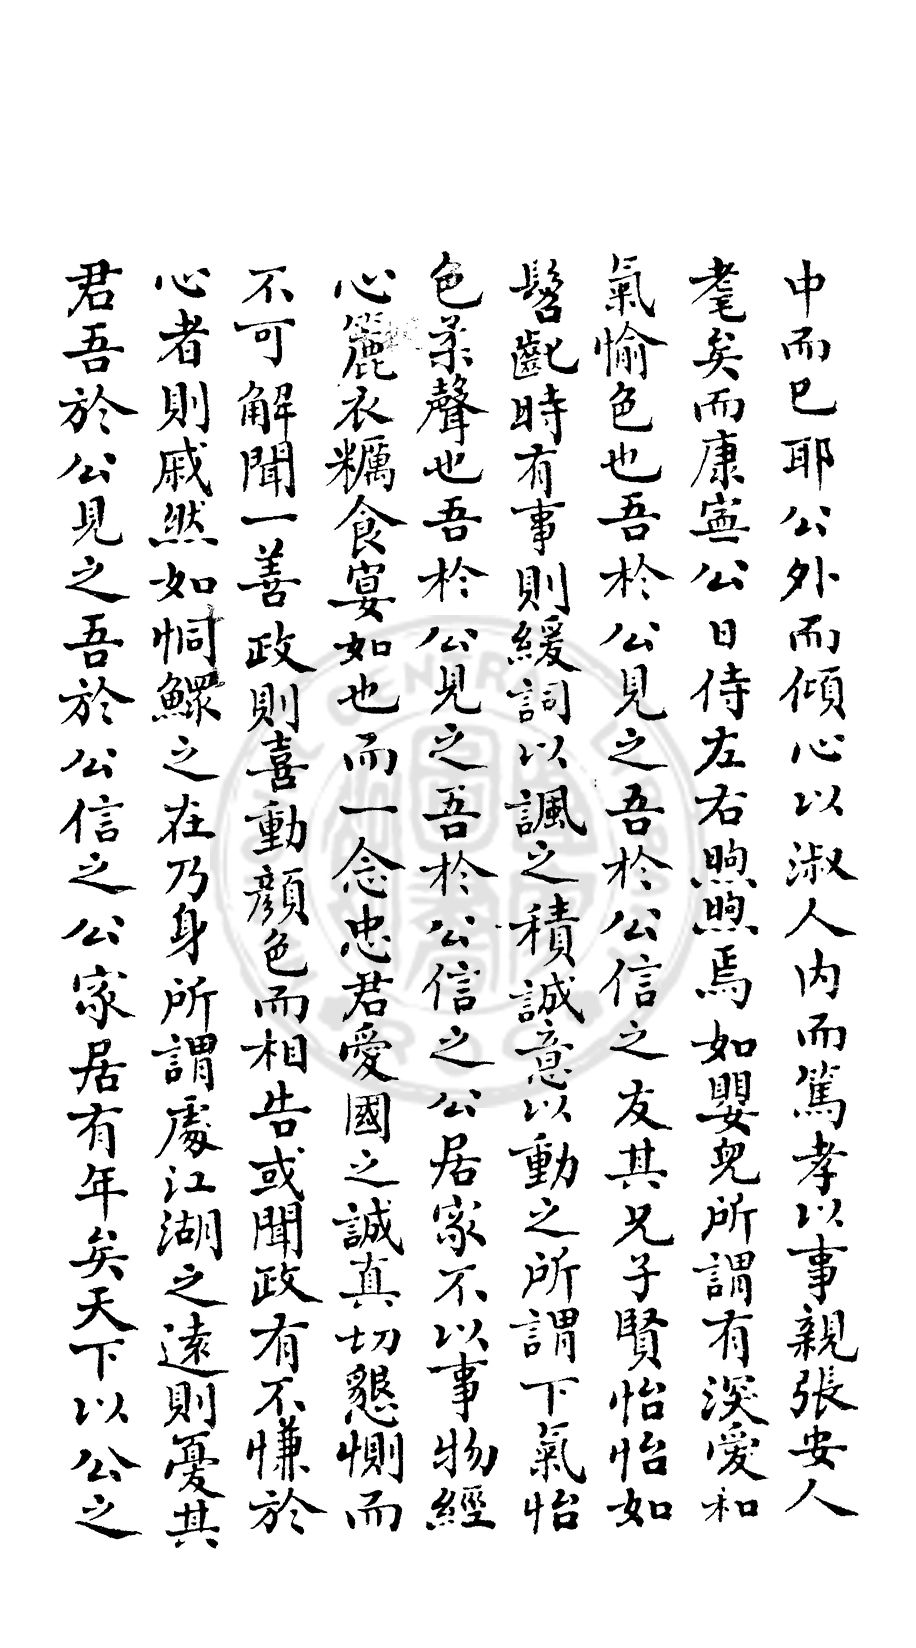 中而已耶公外而傾心以淑人内而篤孝以事親張安人
耄矣而康寧公日侍左右煦煦焉如嬰兒所謂有深愛和
氣愉色也吾於公見之吾於公信之友其兄子賢怡怡如
髫齔時有事則緩詞以諷之積誠意以動之所謂下氣怡
色柔聲也吾於公見之吾於公信之公居家不以事物經
心麤衣糲食宴如也而一念忠君愛國之誠真切懇惻而
不可解聞一善政則喜動顔色而相告或聞政有不慊於
心者則戚然如恫鰥之在乃身所謂處江湖之遠則憂其
君吾於公見之吾於公信之公家居有年矣天下以公之